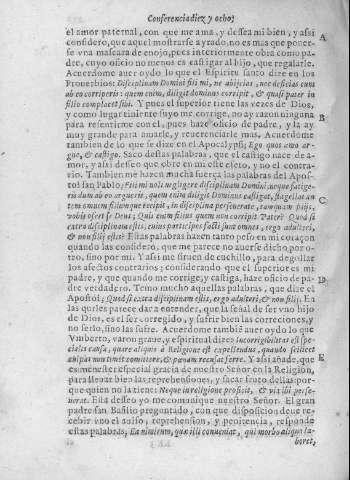 Conferencia diez y ocho;
el amor paternal, con que me ama, y dessea mi bien, y assi
considero, que aquel mostrarse ayrado, no es mas que poner-
se vna mascara de enojo, pues interiormente obra como pa-
dre, cuyo oficio no menos es castigar al hijo, que regalarle.
Acuerdome auer oydo lo que el Espiritu santo dize en los
Prouerbios: Disciplinam Domini fili mi, ne abijcias, nec deficias cum
ab eo corriperis: quem enim diligit dominus corripit, & quasi pater in
filio complacet sibi. Y pues el superior tiene las vezes de Dios,
y como lugarteniente suyo me corrige, no ay razon ninguna
para resentirme con el, pues haze oficio de padre, y la ay
muy grande para amarle, y reuerenciarle mas. Acuerdome
tambien de lo que se dize en el Apocalypsi; Ego quos amo ar-
guo, & castigo. Saco destas palabras, que el castigo nace de a-
mor, y assi deseo que obre en mi este efeto, y no el contra-
rio. Tambien me hazen mucha fuerça las palabras del Apos-
tol san Pablo; Fili mi noli negligere disciplinam Domini, neque fatige-
ris dum ab eo argueris, quem enim diligit Dominus castigat, flagellat au
tem omnem filium quem recipit, in disciplina perseuerate, tanquam filijs,
vobis ofert se Deus; Quis enim filius quem non corripit Pater? Quod si
extra disciplinam estis, cuius participes facti sunt omnes, ergo adulteri,
& non filij estis? Estas palabras hazen tanto peso en mi coraçon
quando las considero, que me parece no auerse dicho por o-
tro, sino por mi. Y assi me siruen de cuchillo, para degollar
los afectos contrarios; considerando que el superior es mi
padre, y que quando me corrige, y castiga, haze oficio de pa-
dre verdadero. Temo mucho aquellas palabras, que dize el
Apostol; Quod si extra disciplinam estis, ergo adulteri, & non filij. En
las quales parece da a entender, que la señal de ser vno hijo
de Dios, es el ser corregido, y sufrir bien las correcciones, y
no serlo, sino las sufre. Acuerdome tambiē auer oydo lo que
Vmberto, varon graue, y espiritual dize: incorrigibilitas est spe-
cialis causa, quare aliquis à Religione est expellendus, quando scilicet
culpas non timet committere, & pœnam recusat ferre. Y assi añade, que
es menester especial gracia de nuestro Señor en la Religion,
para lleuar bien las reprehensiones, y sacar fruto dellas: por-
que quien no la tiene: Neque in religione proficit, & vix ibi perse-
uerat. Esta desseo yo me comunique nuestro Señor. El gran
padre san Basilio preguntado, con que disposicion deue re-
cebir vno el auiso, reprehension, y penitencia, responde
estas palabras, Ea nimirum, quæ illi conueniat, qui morbo aliquo la-
boret,
A
B
C
D
E